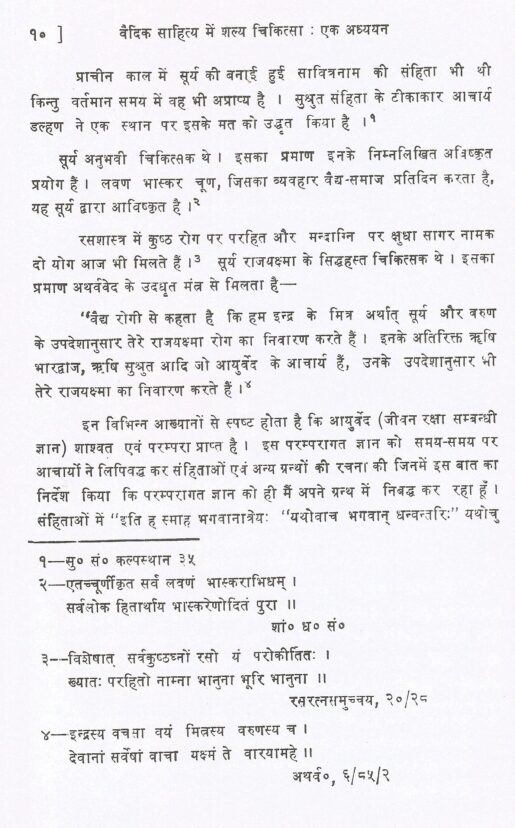 १० ]	वैदिक साहित्य में शल्य चिकित्सा : एक अध्ययन
प्राचीन काल में सूर्य की बनाई हुई सावित्रनाम की संहिता भी थी
किन्तु वर्तमान समय में वह भी अप्राप्य है । सुश्रुत संहिता के टीकाकार आचार्य
डल्हण ने एक स्थान पर इसके मत को उद्धृत किया है ।१
सूर्य अनुभवी चिकित्सक थे । इसका प्रमाण इनके निम्नलिखित अविष्कृत
प्रयोग हैं । लवण भास्कर चूण, जिसका व्यवहार वैद्य-समाज प्रतिदिन करता है,
यह सूर्य द्वारा आविष्कृत है ।२
रसशास्त्र में कुष्ठ रोग पर परहित और मन्दाग्नि पर क्षुधा सागर नामक
दो योग आज भी मिलते हैं ।३ सूर्य राजयक्ष्मा के सिद्धहस्त चिकित्सक थे । इसका
प्रमाण अथर्ववेद के उदधृत मंत्र से मिलता है—
"वैद्य रोगी से कहता है कि हम इन्द्र के मित्र अर्थात् सूर्य और वरुण
के उपदेशानुसार तेरे राजयक्ष्मा रोग का निवारण करते हैं । इनके अतिरिक्त ऋषि
भारद्वाज, ऋषि सुश्रुत आदि जो आयुर्वेद के आचार्य हैं, उनके उपदेशानुसार भी
तेरे राजयक्ष्मा का निवारण करते हैं ।४
इन विभिन्न आख्यानों से स्पष्ट होता है कि आयुर्वेद (जीवन रक्षा सम्बन्धी
ज्ञान) शाश्वत एवं परम्परा प्राप्त है । इस परम्परागत ज्ञान को समय-समय पर
आचार्यो ने लिपिवद्ध कर संहिताओं एवं अन्य ग्रन्थों की रचना की जिनमें इस बात का
निर्देश किया कि परम्परागत ज्ञान को ही मैं अपने ग्रन्थ में निबद्ध कर रहा हूँ ।
संहिताओं में "इति ह स्माह भगवानात्रेयः "यथोवाच भगवान् धन्वन्तरिः" यथोचु
१—सु० सं० कल्पस्थान ३५
२—एतच्चूर्णीकृत सर्व लवणं भास्कराभिधम् ।
सर्वलोक हितार्थाय भास्करेणोदितं पुरा ॥
शां० ध० सं०
३--विशेषात् सर्वकुष्ठघ्नों रसो यं परोकीतितः ।
ख्यातः परहितो नाम्ना भानुना भूरि भानुना ॥
रसरत्नसमुच्चय, २०/२८
४—इन्द्रस्य वचसा वयं मित्रस्य वरुणस्य च ।
देवानां सर्वेषां वाचा यक्ष्मं ते वारयामहे ॥
अथर्व०, ६/८५/२